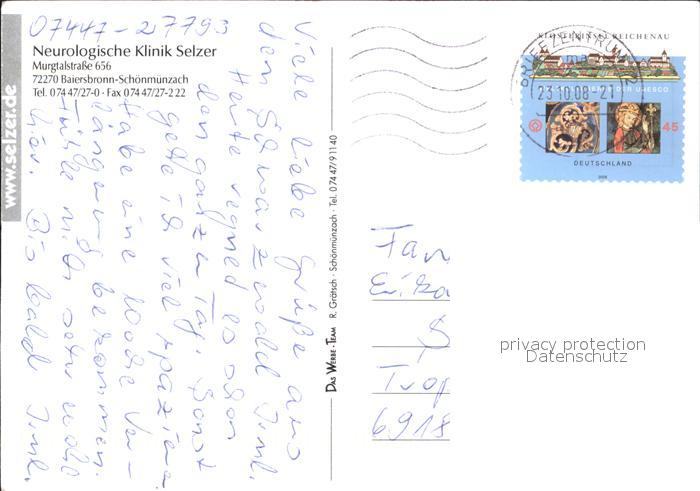 07447-27793
Neurologische Klinik Selzer
Murgtalstraße 656
72270 Baiersbronn-Schönmünzach
Tel. 0 74 47/27-0 · Fax 0 74 47/27-2 22
www.selzer.de
Viele liebe Grüße aus
dem Schwarzwald
Heute regnet es schon
den ganzen Tag. Sonst
gehe ich viel spaziere.
Habe eine Woche Ver-
längerung bekommen.
Fühle mich sehr wohl
hier. Bis bald
DAS WERBE-TEAM R. Grätsch · Schönmünzach · Tel. 0 74 47/9 11 40
KLOSTERINSEL REICHENAU
BRIEFZENTRUM
23.10.08-21
DER UNESCO
45
DEUTSCHLAND
2008
Erika
6918
privacy protection
Datenschutz